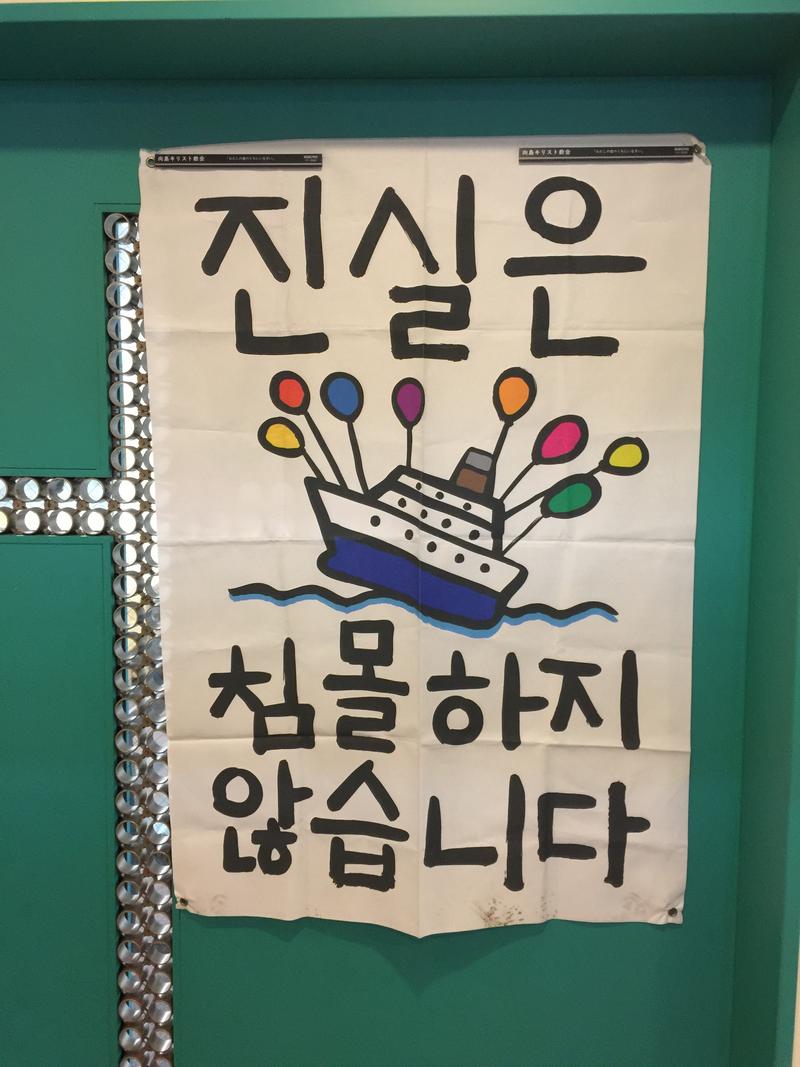 向島キリスト教会
向島キリスト教会
진실은
침몰하지
않습니다